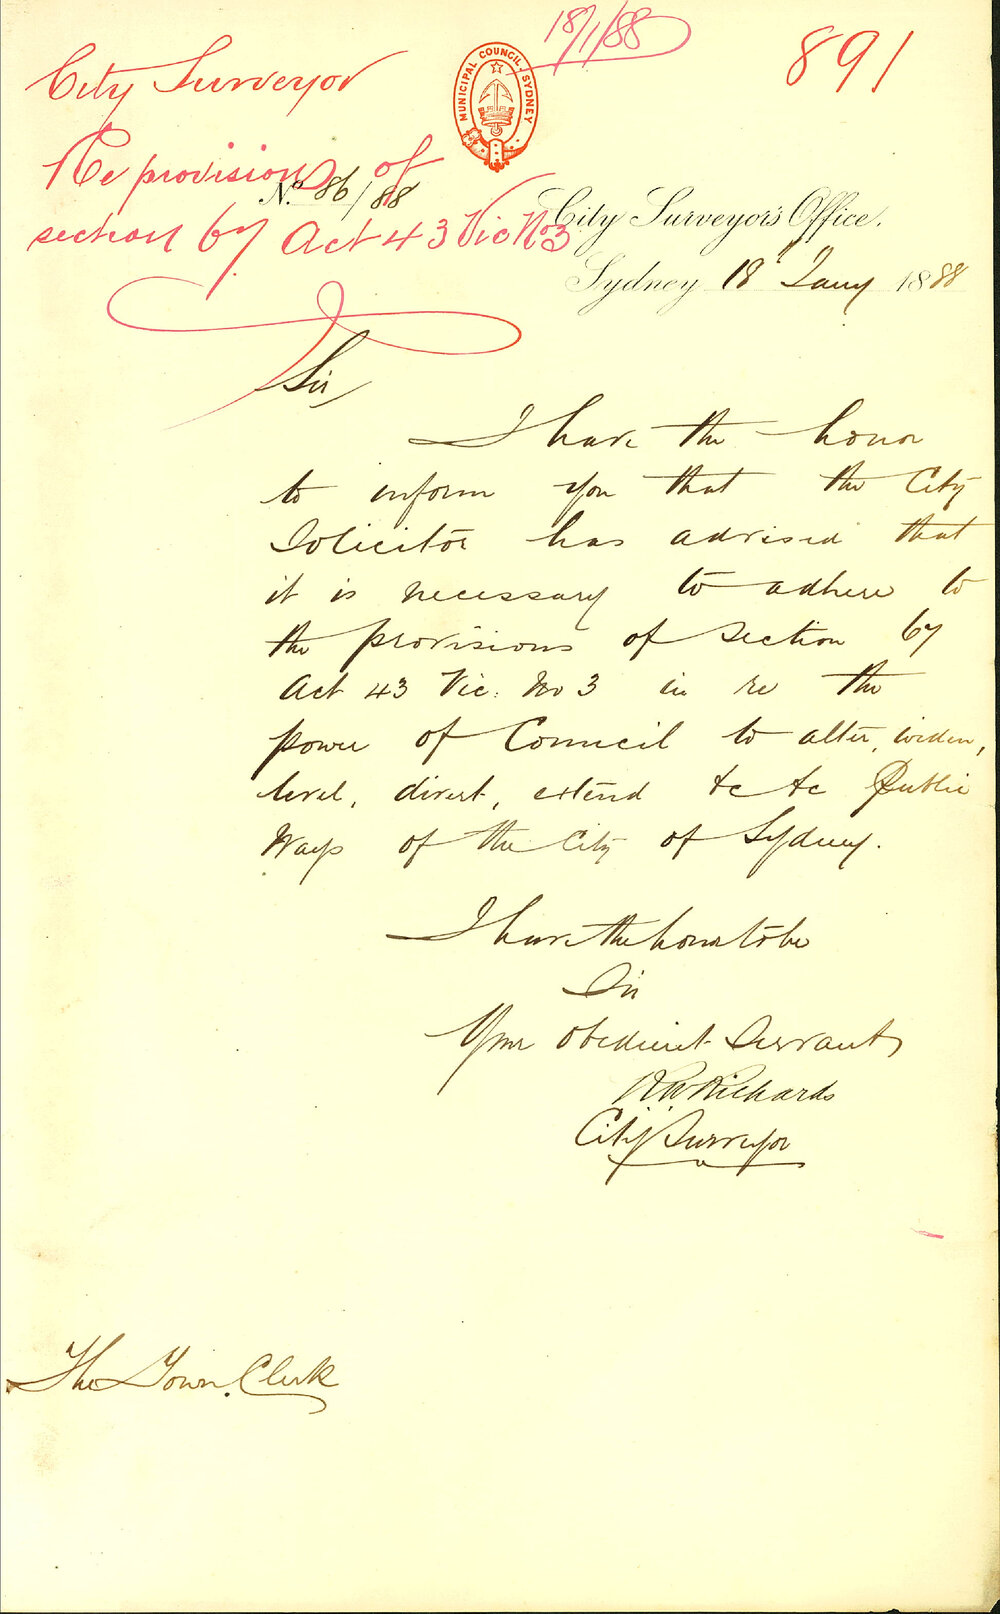 18/1/88
891
City Surveyor
Re provisions of
section 67 Act 43 Vic No 3
MUNICIPAL COUNCIL, SYDNEY
No. 86/88
City Surveyor's Office.
Sydney 18 Jany 1888
Sir,
I have the honor
to inform you that the City
Solicitor has advised that
it is necessary to adhere to
the provisions of section 67
Act 43 Vic. No 3 in re the
power of Council to alter, widen,
level, divert, extend &c &c Public
Ways of the City of Sydney.
I have the honor to be
Sir
Your obedient Servant
RW Richards
City Surveyor
The Town Clerk